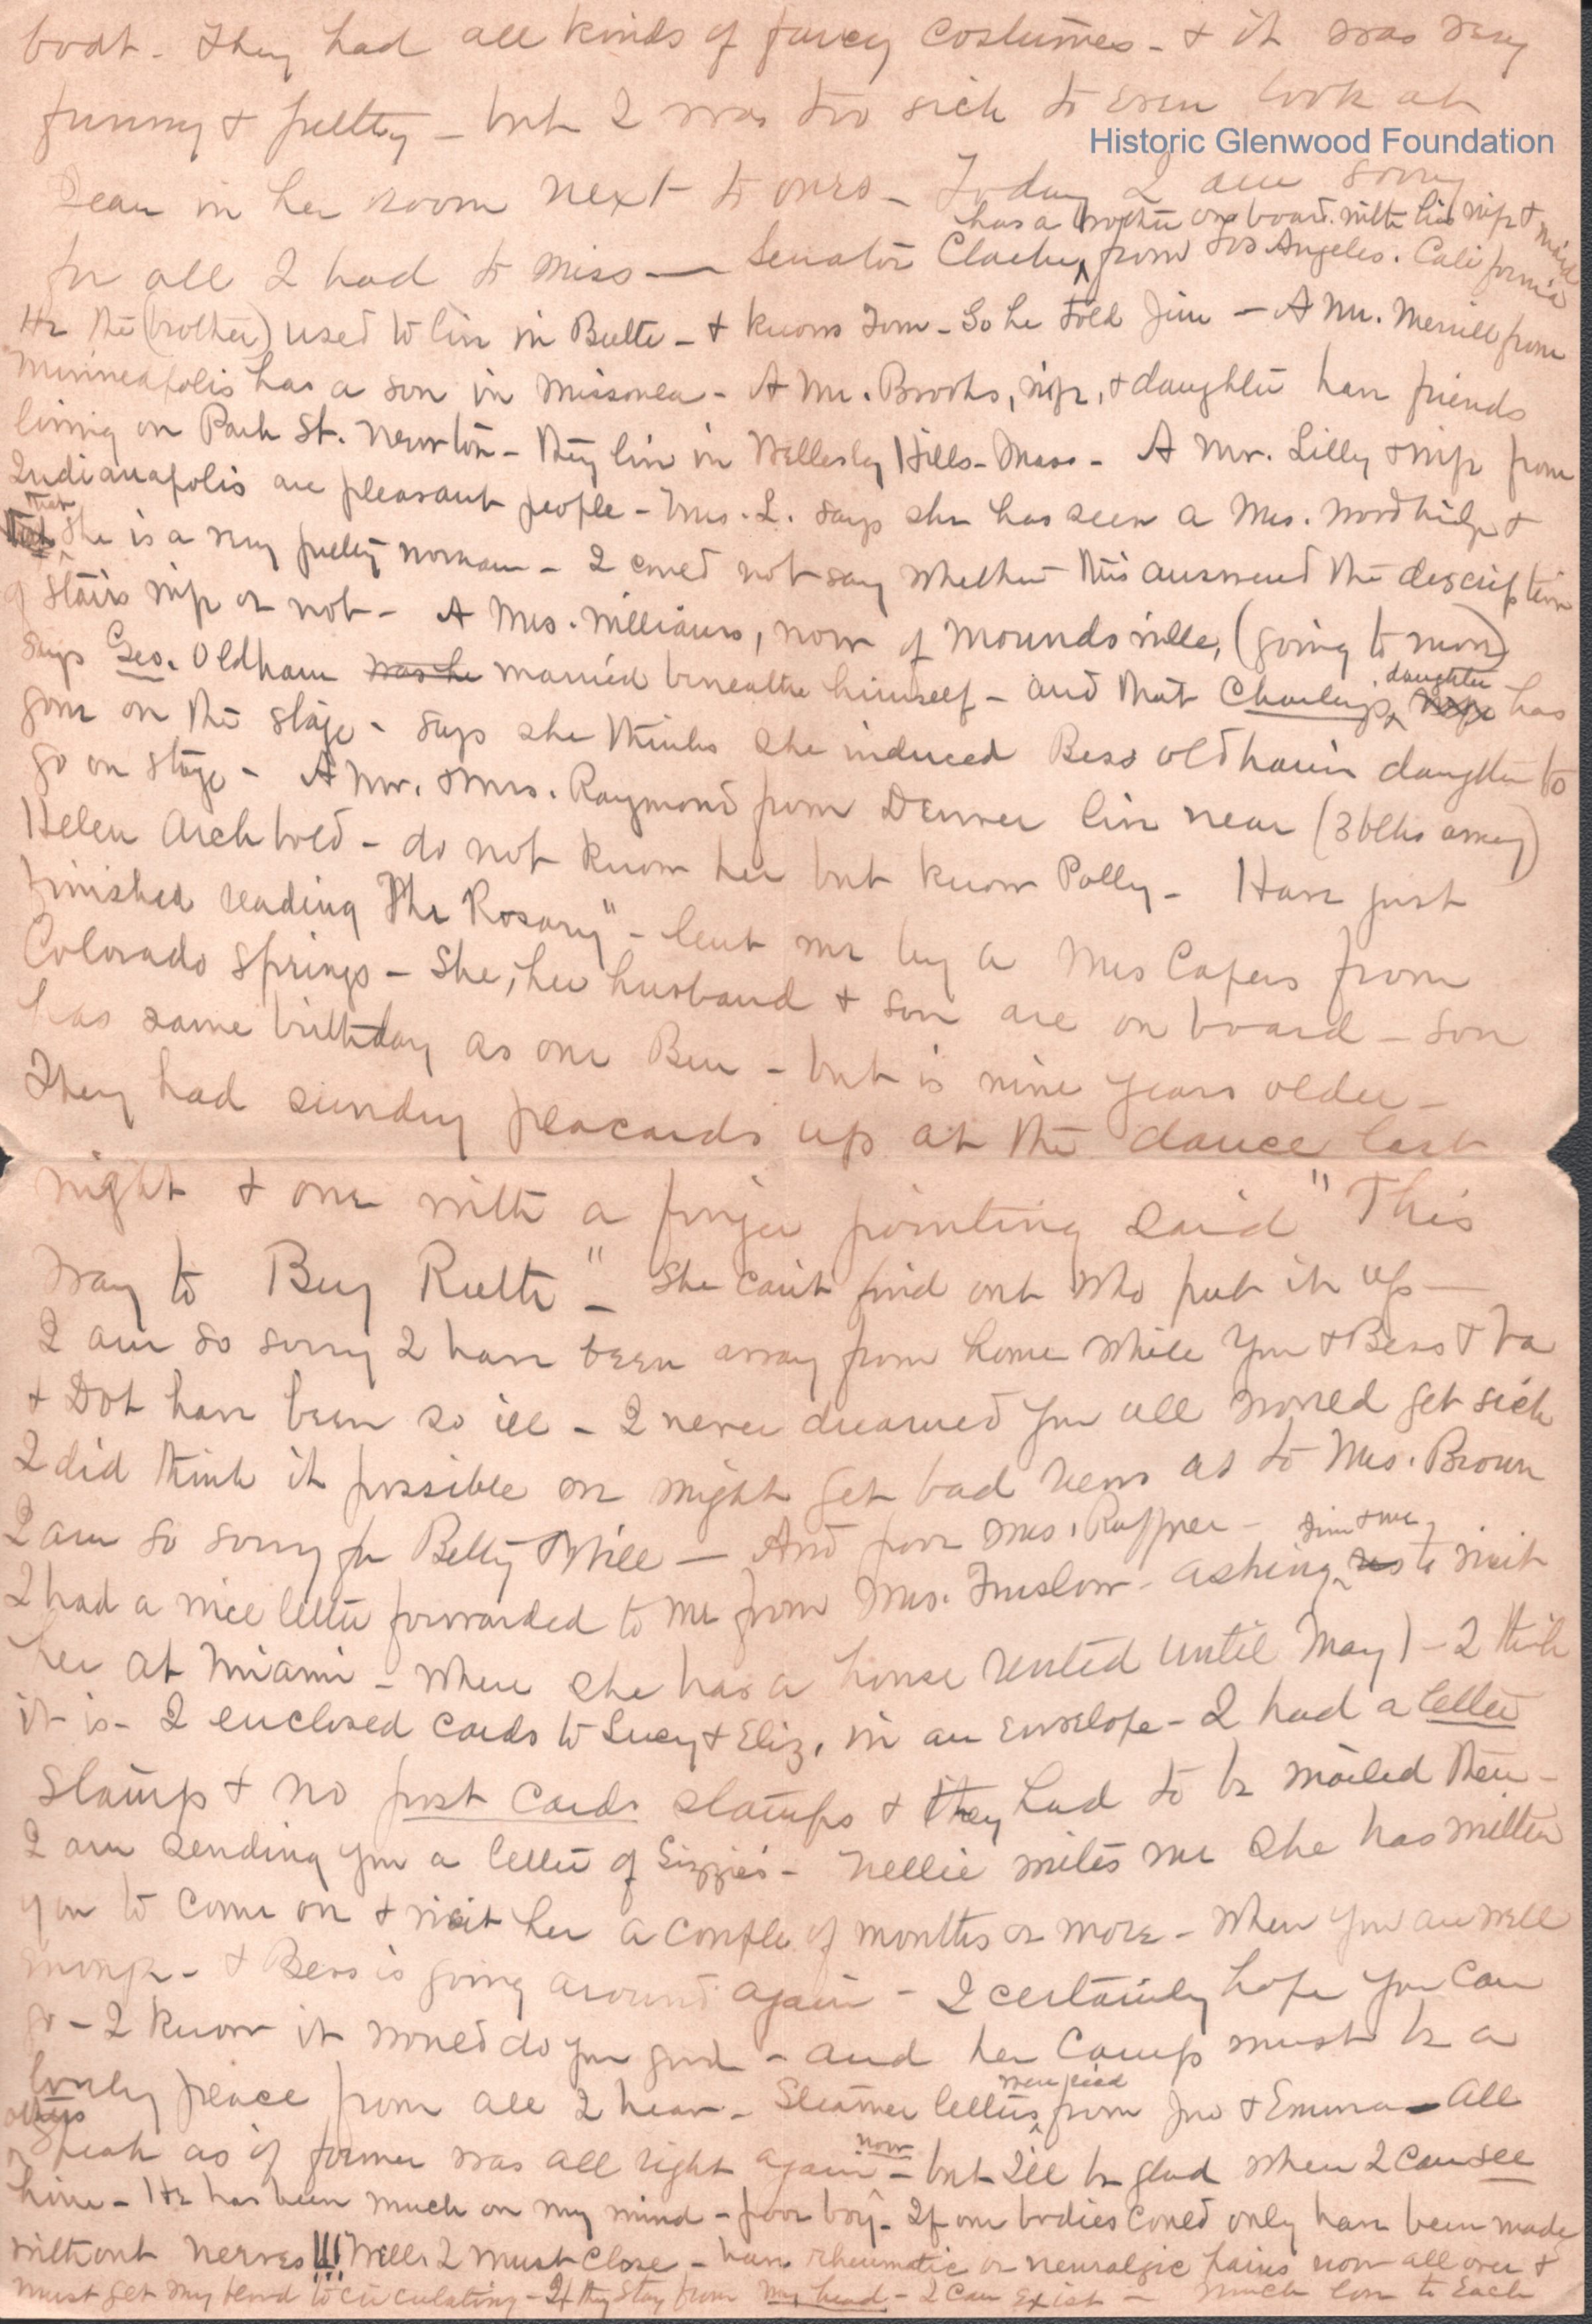 boat - They had all kinds of fancy costumes - & it was very
funny & pretty - but I was too sick to even look at
Historic Glenwood Foundation
Dean in her room next to ours - Today I am sorry
has a brother on board with his wife & maid
for all I had to miss — Senator Clarke, from Los Angeles. California
He the (brother) used to live in Butte - & knows Tom - So he told Jim - A Mr. Merrill from
Minneapolis has a son in Missoula - A Mr. Brooks, wife, & daughter have friends
living on Park St. Newton - They live in Wellesley Hills - Mass - A Mr. Lilly & wife from
Indianapolis are pleasant people - Mrs. L. says she has seen a Mrs. Woodbridge &
that
she is a very pretty woman - I could not say whether this answered the description
of Stairs wife or not - A Mrs. Williams, now of Moundsville, (going to move)
says Geo. Oldham was he married beneath himself - and that Charley's daughter has
gone on the stage - says she thinks she induced Bess Oldham's daughter to
go on stage - A Mr. & Mrs. Raymond from Denver live near (3 blks away)
Helen Archbold - do not know her but know Polly - Have just
finished reading "The Rosary" - lent me by a Mrs Capers from
Colorado Springs - She, her husband & son are on board - son
has same birthday as our Ben - but is nine years older -
They had sundry placards up at the dance last
night & one with a finger pointing said "This
way to Buy Ruth" - She can't find out who put it up -
I am so sorry I have been away from home while you & Bess & Va
& Dot have been so ill - I never dreamed you all would get sick
I did think it possible we might get bad news as to Mrs. Brown
I am so sorry for Betty & Will - And poor Mrs. Ruffner -
Jim & me
I had a nice letter forwarded to me from Mrs. Inslow - asking us to visit
her at Miami - where she has a house rented until May 1 - I think
it is - I enclosed cards to Lucy & Eliz. in an envelope - I had a letter
stamp & no post cards stamps & they had to be mailed then -
I am sending you a letter of Lizzie's - Nellie writes me she has written
you to come on & visit her a couple of months or more - when you are well
enough - & Bess is going around again - I certainly hope you can
go - I know it would do you good - and her Camp must be a
lovely place from all I hear - Steamer letters were read from Jno & Emma - All
others
speak as if former was all right again now - but I'll be glad when I can see
him - He has been much on my mind - poor boy - If our bodies could only have been made
without nerves!!! Well I must close - have rheumatic or neuralgic pains now all over &
must get my blood to circulating - If they stay from my head - I can exist - Much love to Each